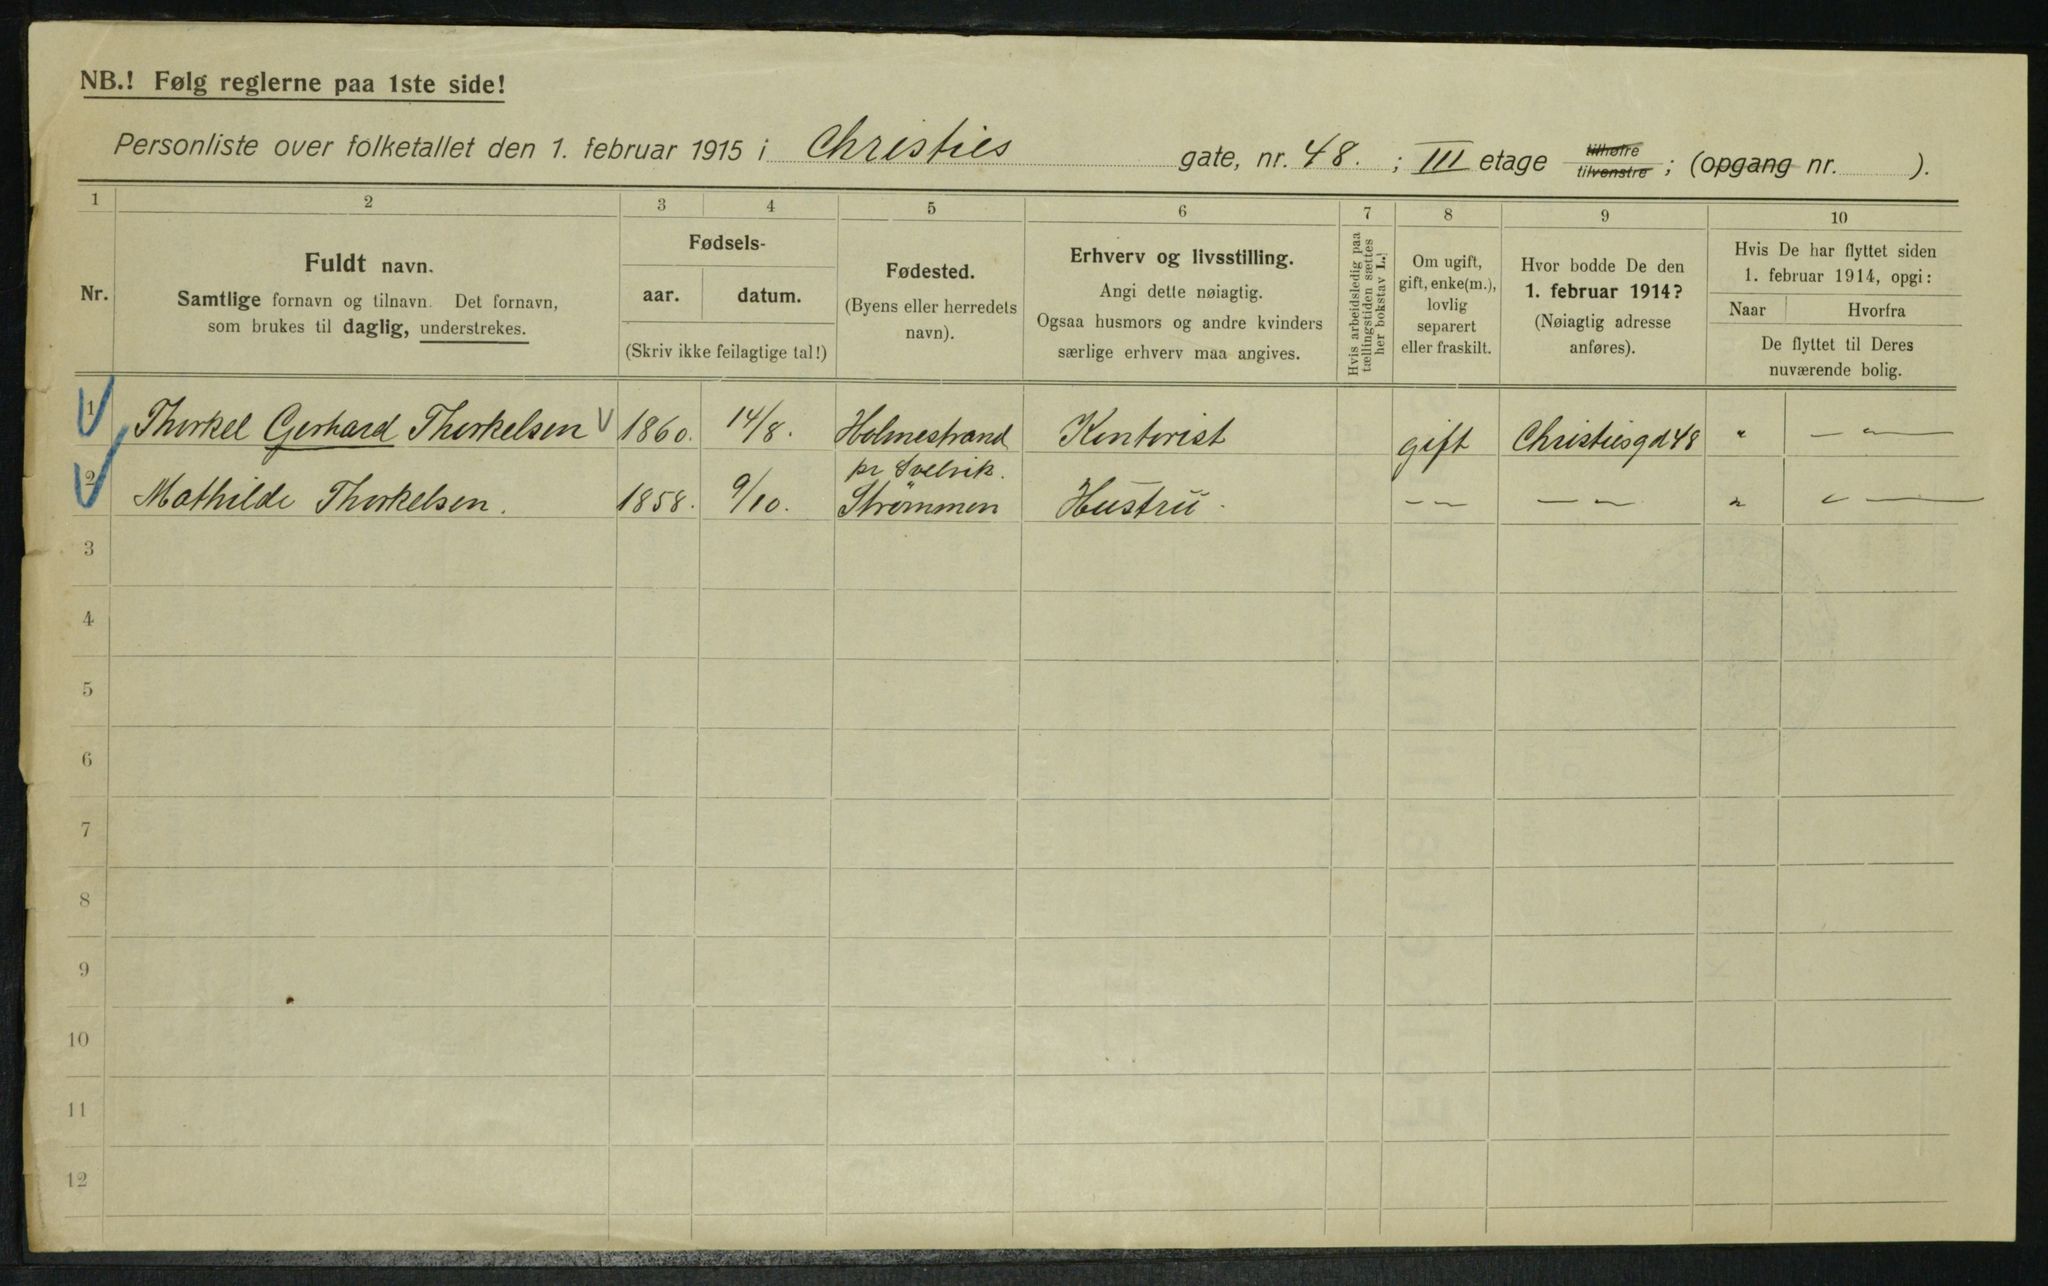 NB.! Følg reglerne paa 1ste side!
Personliste over folketallet den 1. februar 1915 i Christies gate, nr. 48. ; III etage tilhøire tilvenstre ; (opgang nr. ).
1 2 3 4 5 6 7 8 9 10
Nr.
Fuldt navn.
Samtlige fornavn og tilnavn. Det fornavn,
som brukes til daglig, understrekes.
Fødsels-
aar. datum.
(Skriv ikke feilagtige tal!)
Fødested.
(Byens eller herredets
navn).
Erhverv og livsstilling.
Angi dette nøiagtig.
Ogsaa husmors og andre kvinders
særlige erhverv maa angives.
Hvis arbeidsledig paa
tællingstiden sættes
her bokstav L.!
Om ugift,
gift, enke(m.),
lovlig
separert
eller fraskilt.
Hvor bodde De den
1. februar 1914?
(Nøiagtig adresse
anføres).
Hvis De har flyttet siden
1. februar 1914, opgi:
Naar Hvorfra
De flyttet til Deres
nuværende bolig.
1 Thorkel Gerhard Thorkelsen 1860. 14/8. Holmestrand Kontorist gift Christiesgd 48 " — " —
pr Svelvik.
2 Mathilde Thorkelsen. 1858. 9/10. Strømmen Hustru. — " — — " — " " —
3
4
5
6
7
8
9
10
11
12